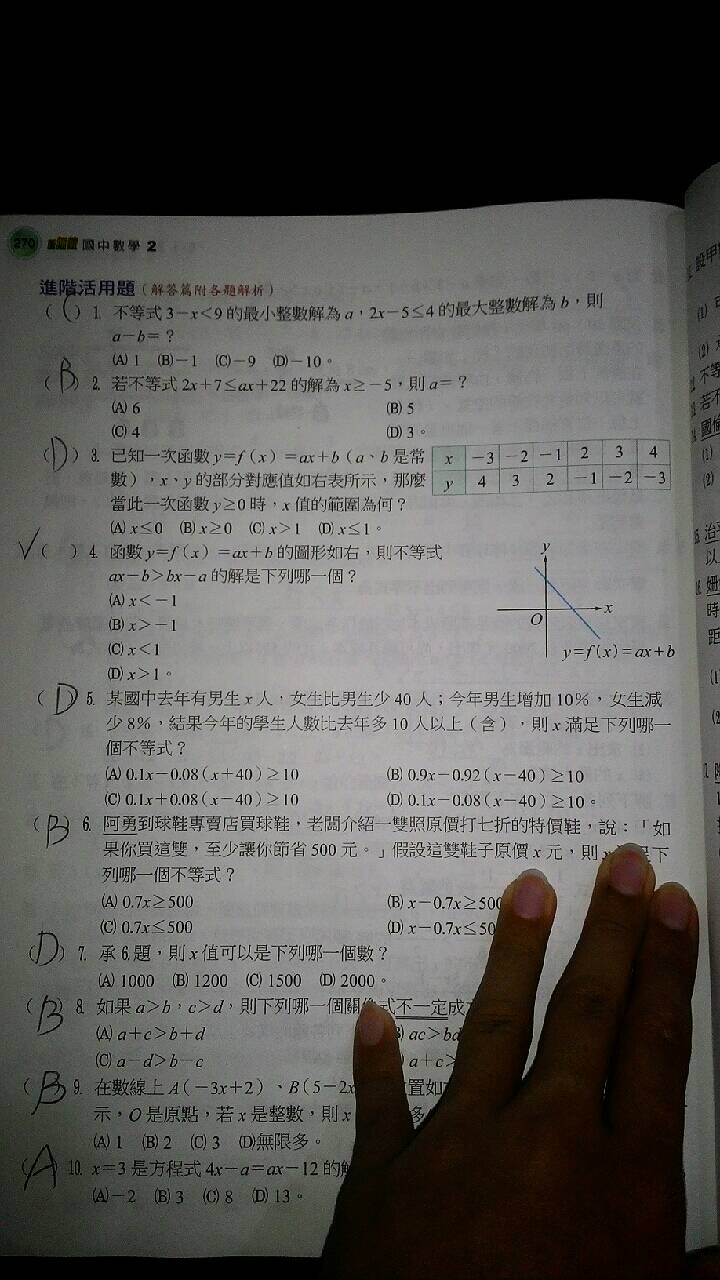 270 國中數學 2
進階活用題（解答篇附各題解析）
( C ) 1. 不等式 3－x＜9 的最小整數解為 a，2x－5≤4 的最大整數解為 b，則
a－b＝？
(A) 1 (B)－1 (C)－9 (D)－10。
( B ) 2. 若不等式 2x＋7≤ax＋22 的解為 x≥－5，則 a＝？
(A) 6 (B) 5
(C) 4 (D) 3。
( D ) 3. 已知一次函數 y＝f（x）＝ax＋b（a、b 是常
數），x、y 的部分對應值如右表所示，那麼
當此一次函數 y≥0 時，x 值的範圍為何？
x －3 －2 －1 2 3 4
y 4 3 2 －1 －2 －3
(A) x≤0 (B) x≥0 (C) x＞1 (D) x≤1。
✓ ( ) 4. 函數 y＝f（x）＝ax＋b 的圖形如右，則不等式
ax－b＞bx－a 的解是下列哪一個？
(A) x＜－1
(B) x＞－1
(C) x＜1
(D) x＞1。
y
O x
y＝f(x)＝ax＋b
( D ) 5. 某國中去年有男生 x 人，女生比男生少 40 人；今年男生增加 10％，女生減
少 8％，結果今年的學生人數比去年多 10 人以上（含），則 x 滿足下列哪一
個不等式？
(A) 0.1x－0.08（x＋40）≥10 (B) 0.9x－0.92（x－40）≥10
(C) 0.1x＋0.08（x－40）≥10 (D) 0.1x－0.08（x－40）≥10。
( B ) 6. 阿勇到球鞋專賣店買球鞋，老闆介紹一雙照原價打七折的特價鞋，說：「如
果你買這雙，至少讓你節省 500 元。」假設這雙鞋子原價 x 元，則 x 下
列哪一個不等式？
(A) 0.7x≥500 (B) x－0.7x≥500
(C) 0.7x≤500 (D) x－0.7x≤50
( D ) 7. 承 6 題，則 x 值可以是下列哪一個數？
(A) 1000 (B) 1200 (C) 1500 (D) 2000。
( B ) 8. 如果 a＞b，c＞d，則下列哪一個關係式不一定成
(A) a＋c＞b＋d ac＞bd
(C) a－d＞b－c a＋c＞
( B ) 9. 在數線上 A（－3x＋2）、B（5－2x 置如
示，O 是原點，若 x 是整數，則 x 多
(A) 1 (B) 2 (C) 3 (D)無限多。
( A ) 10. x＝3 是方程式 4x－a＝ax－12 的
(A)－2 (B) 3 (C) 8 (D) 13。